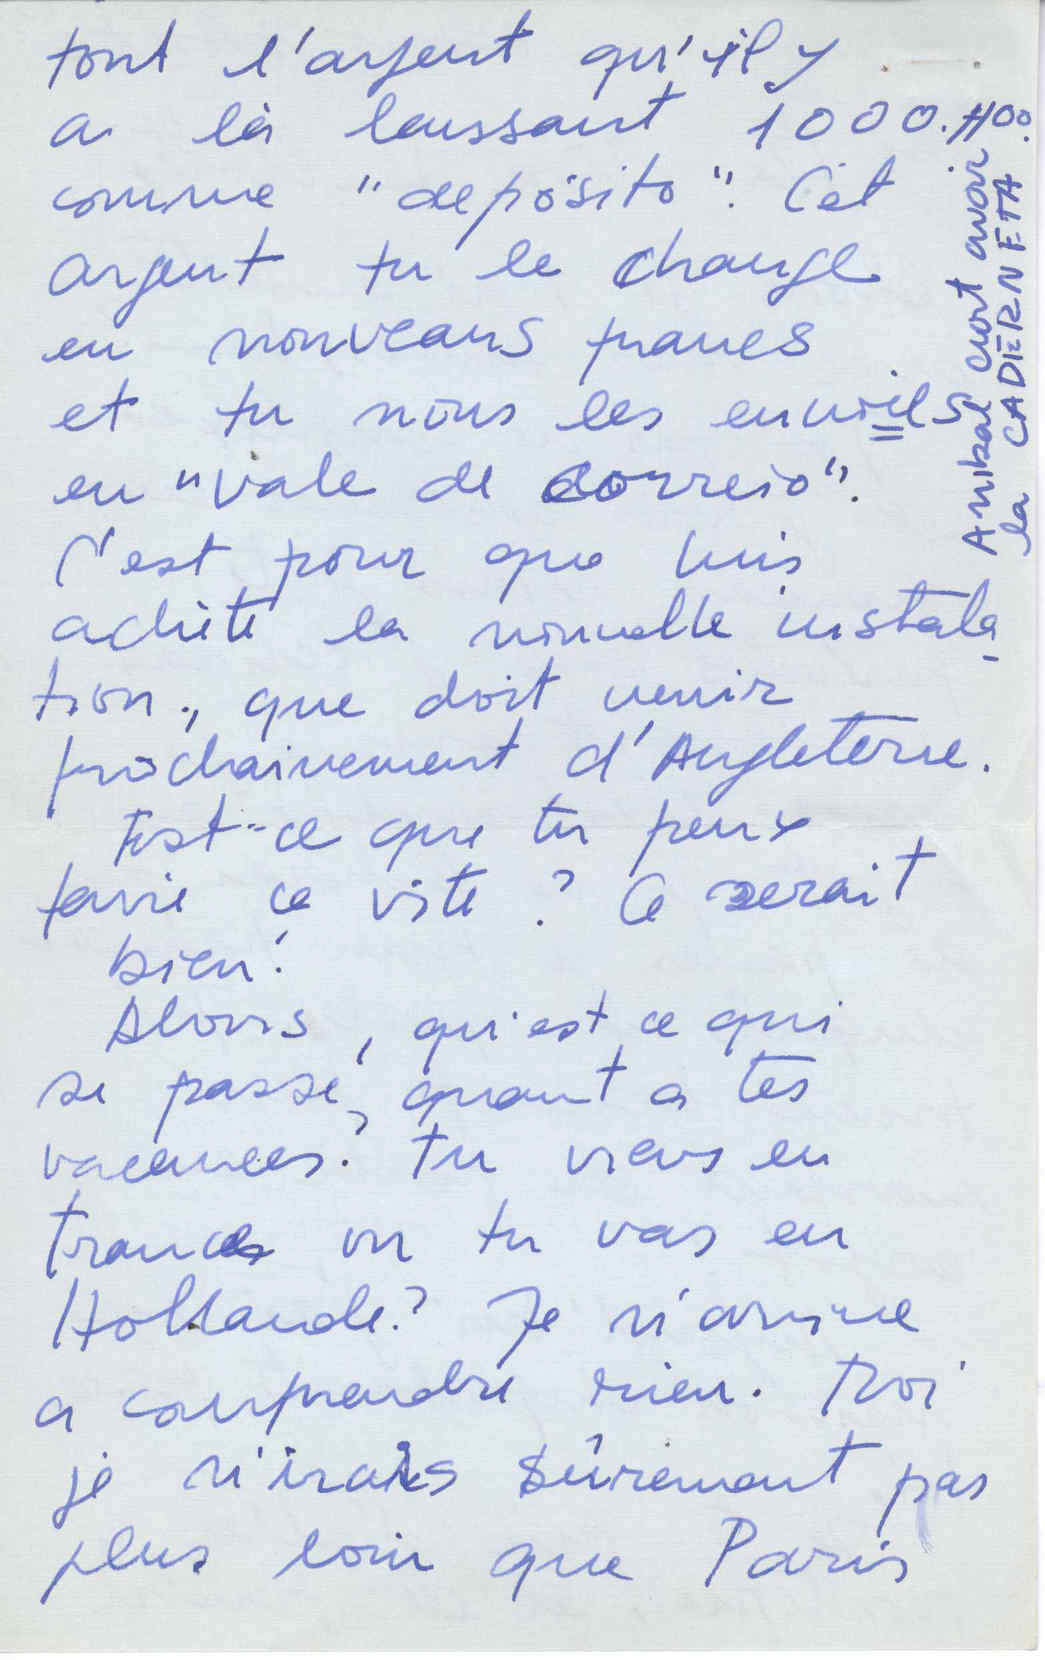 tout l'argent qu'il y
a là laissant 1000.$00
comme "depósito". Cet
argent tu le change
en nouveaus francs
et tu nous les envoies
en "vale de correio".
C'est pour que Luis
achète la nouvelle instala-
tion, que doit venir
prochainement d'Angleterre.
Est-ce que tu peux
faire ça vite? Ce serait
bien!
Alors, qu'est ce qui
se passe, quant a tes
vacances? Tu viens en
France ou tu vas en
Hollande? Je n'arrive
a comprendre rien. Moi
je n'irais sûrement pas
plus loin que Paris
Anibal croit avoir
la CADERNETA.